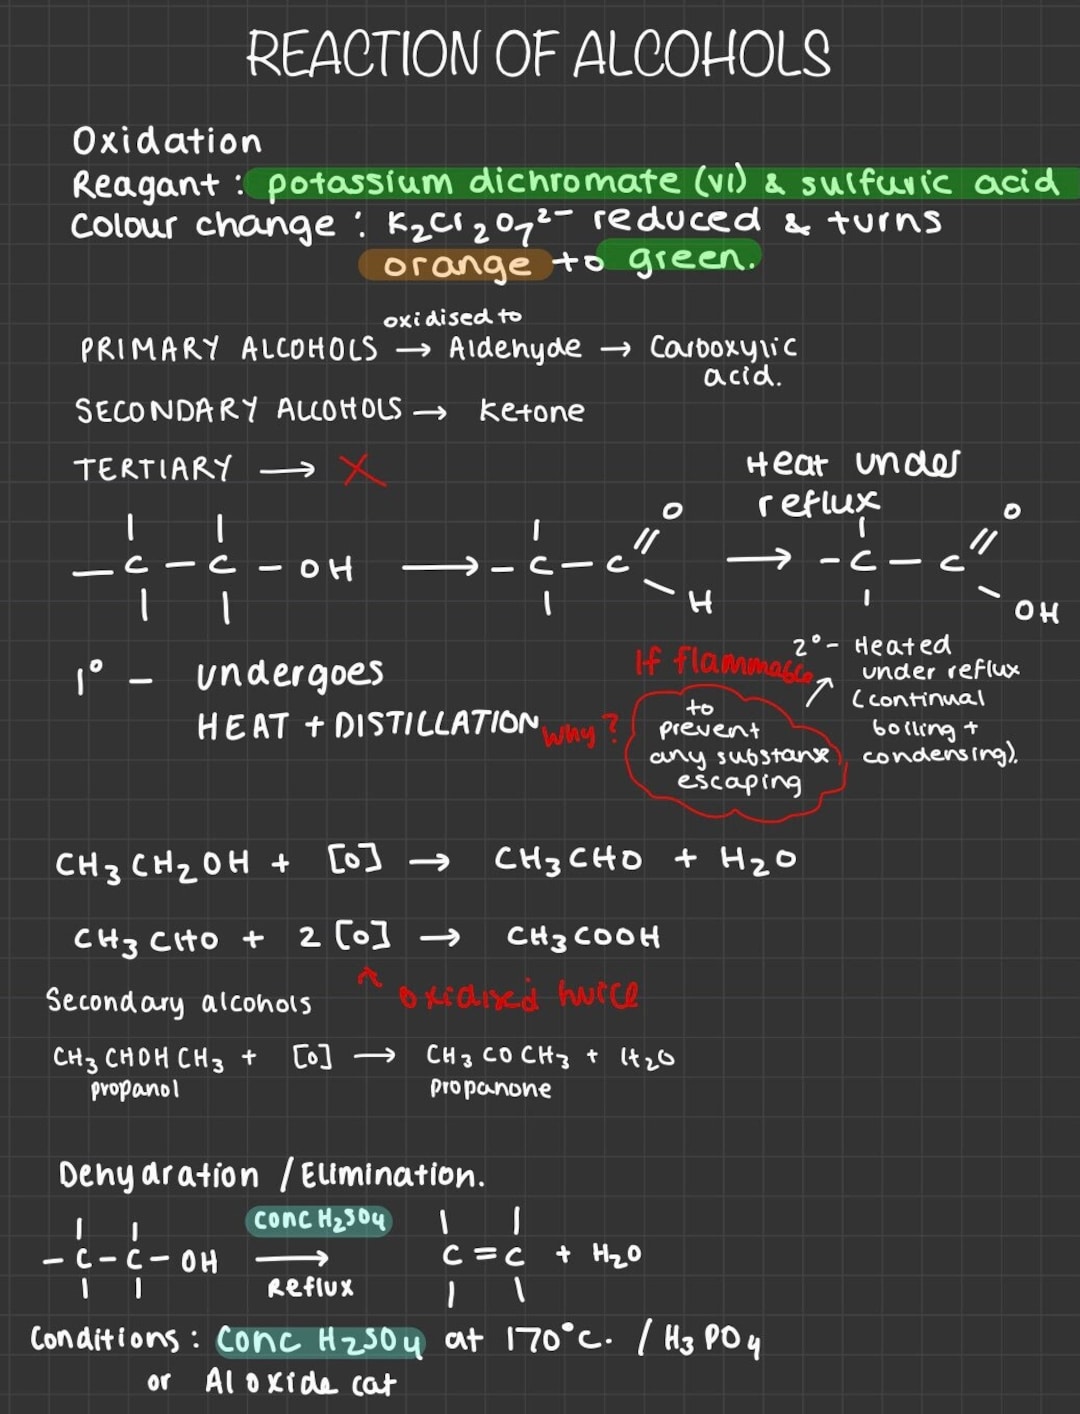 REACTION OF ALCOHOLS
Oxidation
Reagant : potassium dichromate (VI) & sulfuric acid
Colour change : K₂Cr₂O₇²⁻ reduced & turns
orange to green.
oxidised to
PRIMARY ALCOHOLS → Aldehyde → Carboxylic
acid.
SECONDARY ALCOHOLS → Ketone
TERTIARY → X
Heat under
reflux
— C — C — OH → — C — C = O – H → – C – C = O – OH
1° – undergoes
HEAT + DISTILLATION
If flammable
Why?
to
prevent
any substanse
escaping
2° – Heated
under reflux
(continual
boiling +
condensing).
CH₃CH₂OH + [O] → CH₃CHO + H₂O
CH₃CHO + 2[O] → CH₃COOH
oxidised twice
Secondary alcohols
CH₃CHOHCH₃ + [O] → CH₃COCH₃ + H₂O
propanol propanone
Dehydration / Elimination.
conc H₂SO₄
– C – C – OH → C = C + H₂O
Reflux
Conditions : Conc H₂SO₄ at 170°C. / H₃PO₄
or Al oxide cat